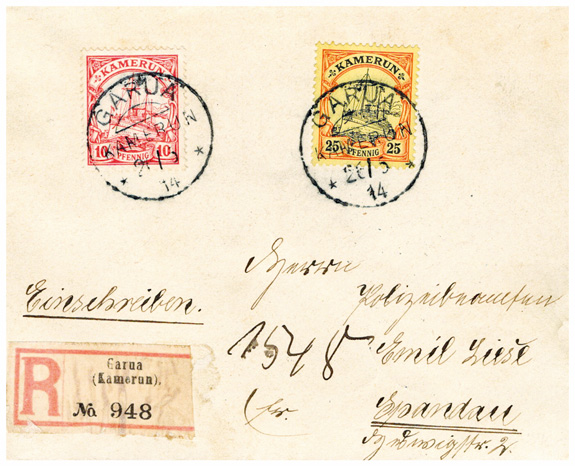 KAMERUN
10 PFENNIG 10
GARUA
KAMERUN
14
KAMERUN
25 PFENNIG 25
GARUA
KAMERUN
26/5
14
Einschreiben.
Herrn
Polizeibeamten
1548
Emil Liese
Spandau
Hedwigstr. 2.
R
Garua
(Kamerun).
No 948